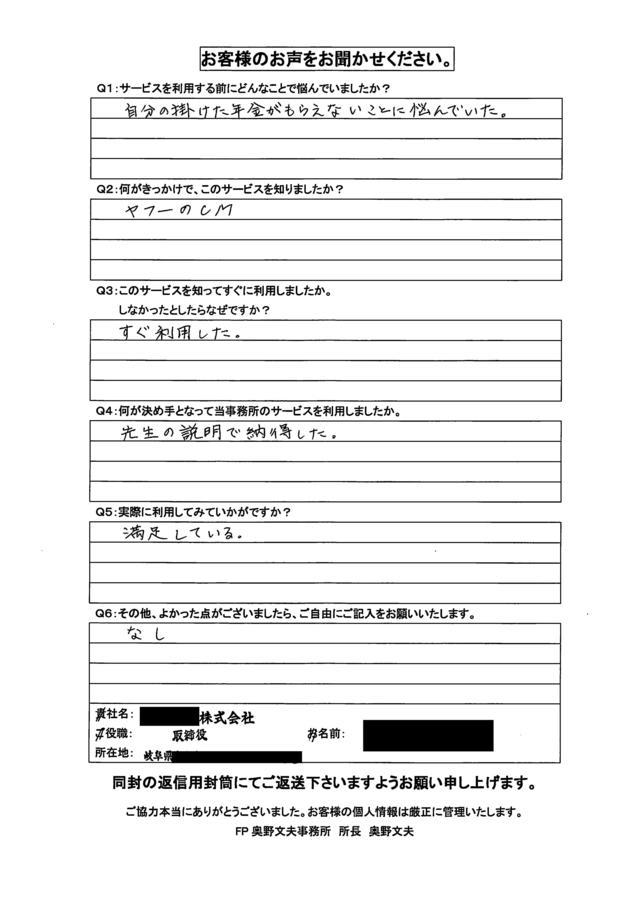 お客様のお声をお聞かせください。
Q1:サービスを利用する前にどんなことで悩んでいましたか？
自分の掛けた年金がもらえないことに悩んでいた。
Q2:何がきっかけで、このサービスを知りましたか？
ヤフーのCM
Q3:このサービスを知ってすぐに利用しましたか。
しなかったとしたらなぜですか？
すぐ利用した。
Q4:何が決め手となって当事務所のサービスを利用しましたか。
先生の説明で納得した。
Q5:実際に利用してみていかがですか？
満足している。
Q6:その他、よかった点がございましたら、ご自由にご記入をお願いいたします。
なし
貴社名: 株式会社
お役職: 取締役 お名前:
所在地: 岐阜県
同封の返信用封筒にてご返送下さいますようお願い申し上げます。
ご協力本当にありがとうございました。お客様の個人情報は厳正に管理いたします。
FP 奥野文夫事務所 所長 奥野文夫